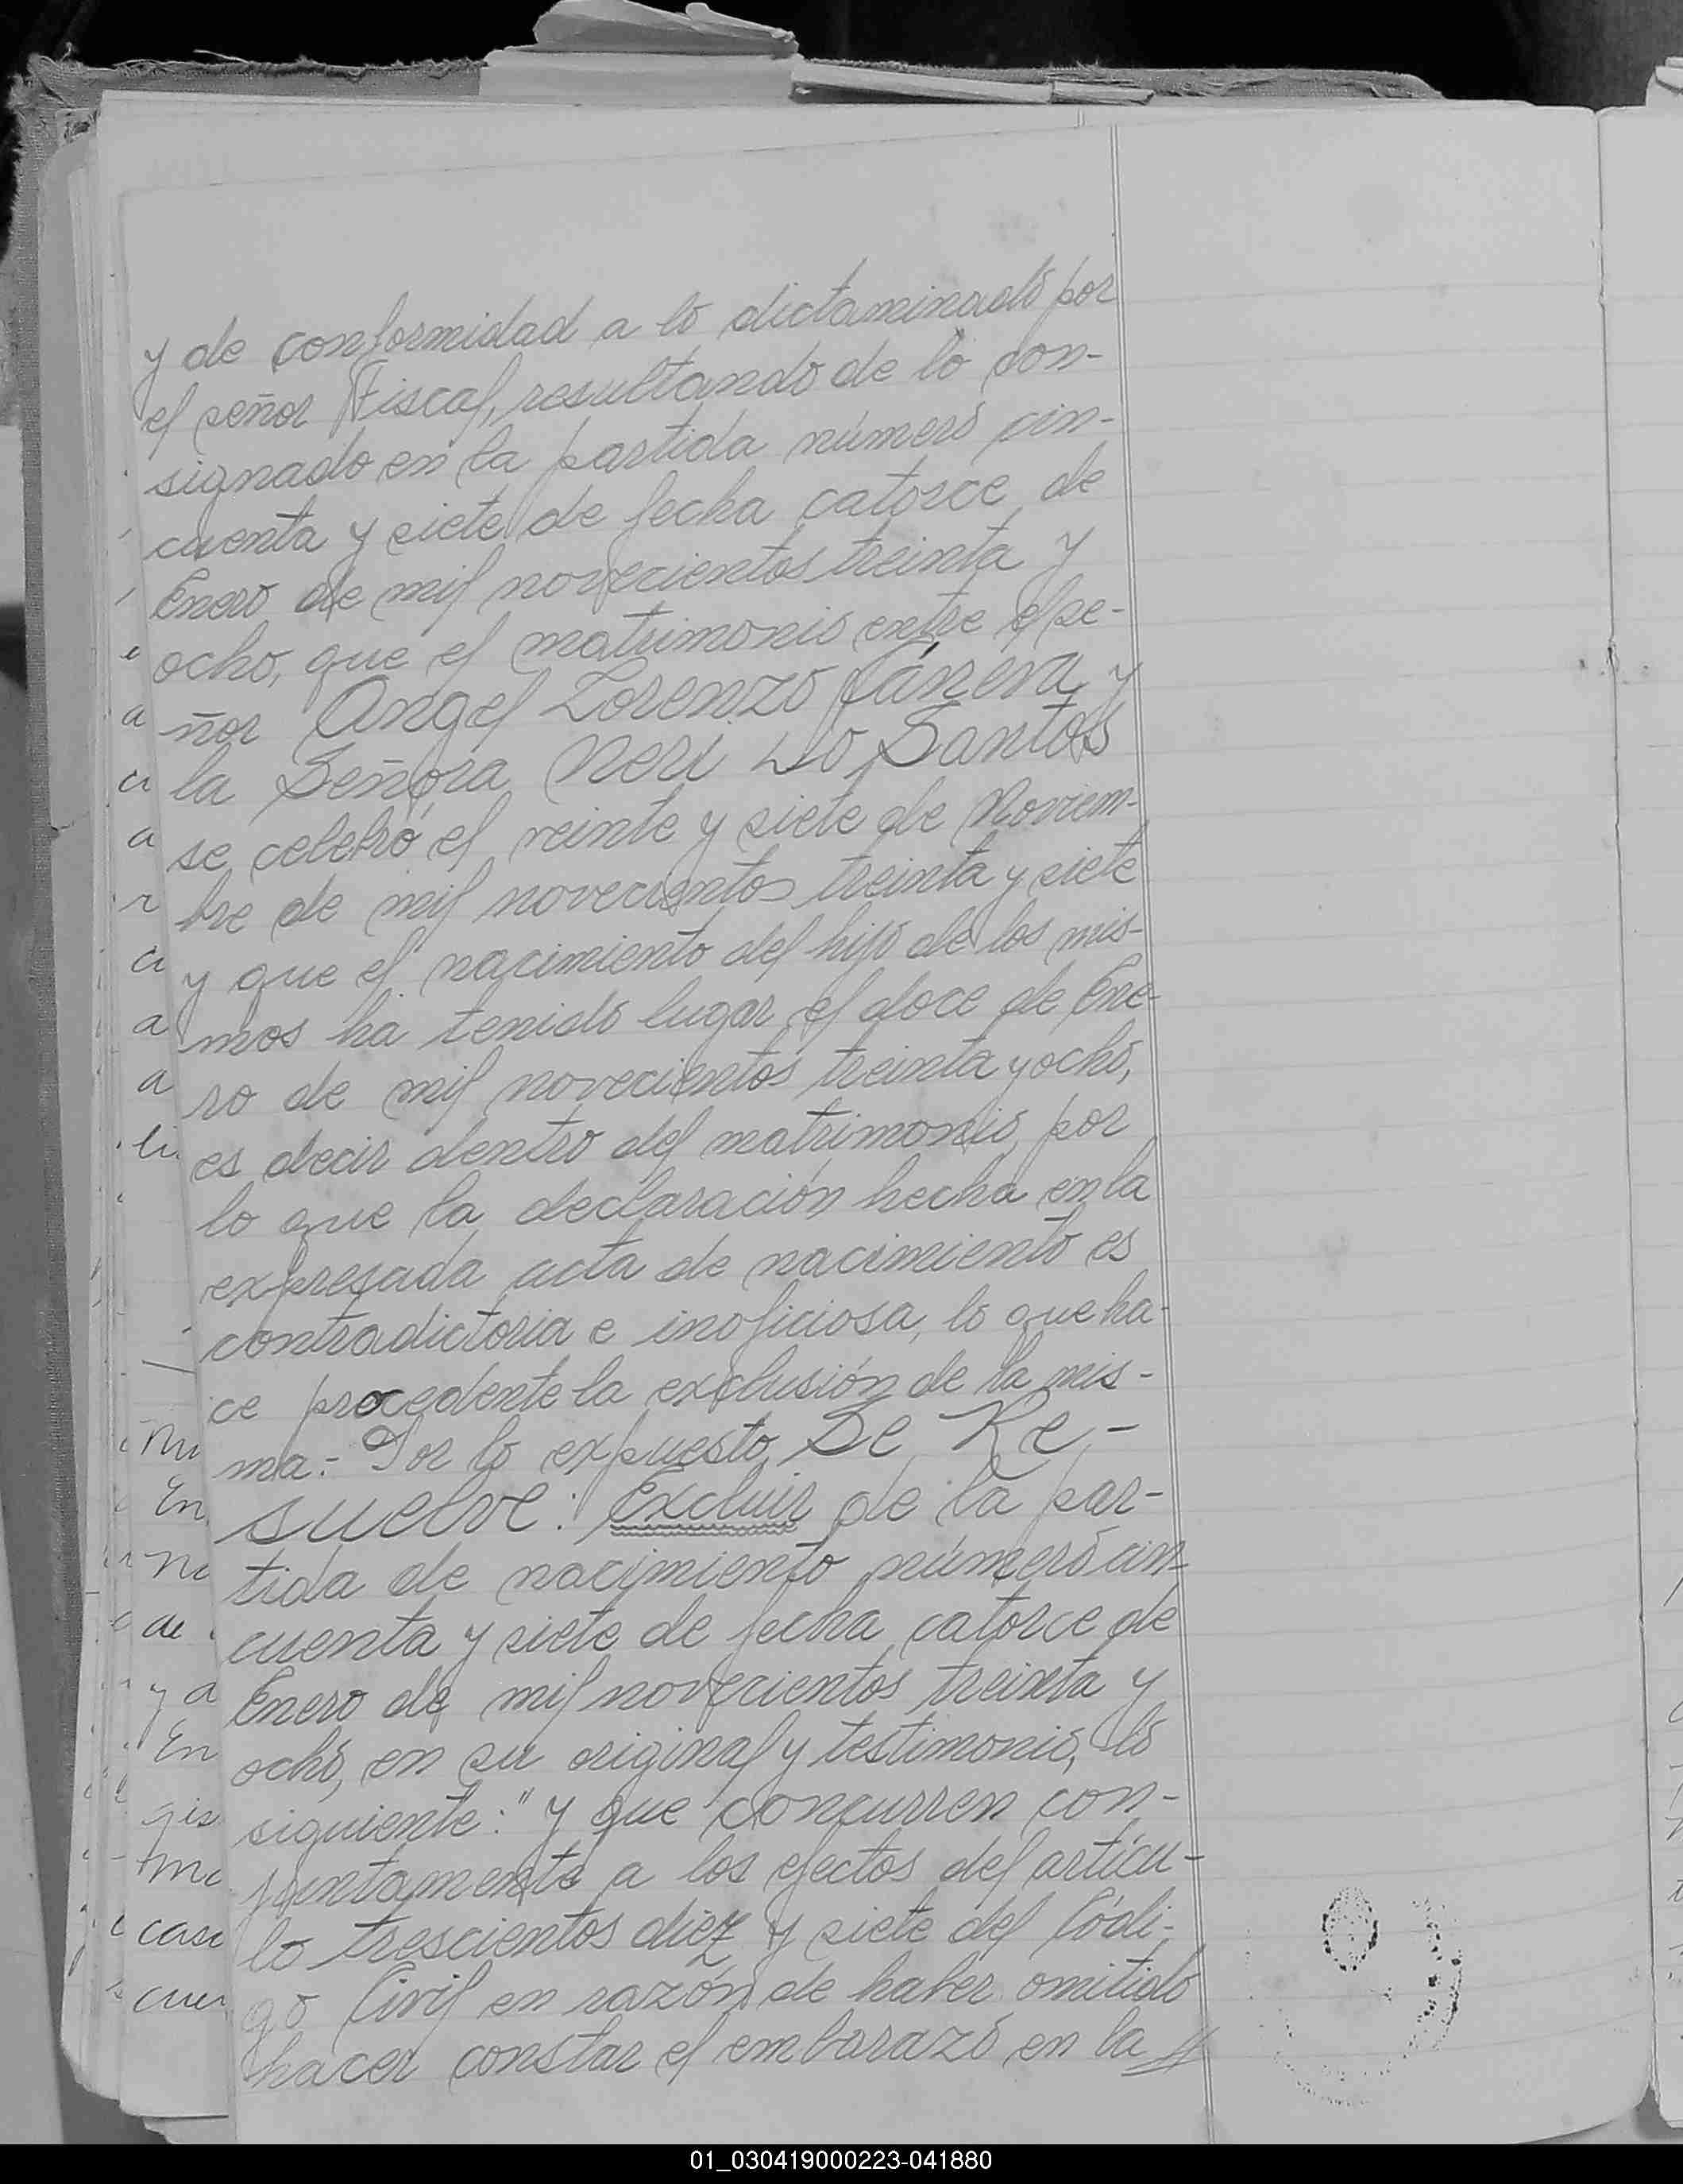 y de conformidad a lo dictaminado por
el señor Fiscal, resultando de lo con-
signado en la partida número cin-
cuenta y siete de fecha catorce de
Enero de mil novecientos treinta y
ocho, que el matrimonio entre el se-
ñor Angel Lorenzo Cáneva y
la Señora Neri Do Santos
se celebró el veinte y siete de Noviem-
bre de mil novecientos treinta y siete
y que el nacimiento del hijo de los mis-
mos ha tenido lugar el doce de Ene-
ro de mil novecientos treinta y ocho,
es decir dentro del matrimonio, por
lo que la declaración hecha en la
expresada acta de nacimiento es
contradictoria e inoficiosa, lo que ha-
ce procedente la exclusión de la mis-
ma:- Por lo expuesto, Se Re-
suelve: Excluir de la par-
tida de nacimiento número cin-
cuenta y siete de fecha catorce de
Enero de mil novecientos treinta y
ocho, en su original y testimonio, lo
siguiente: "y que concurren con-
juntamente a los efectos del artícu-
lo trescientos diez y siete del Códi-
go Civil en razón de haber omitido
hacer constar el embarazo en la //
01_030419000223-041880